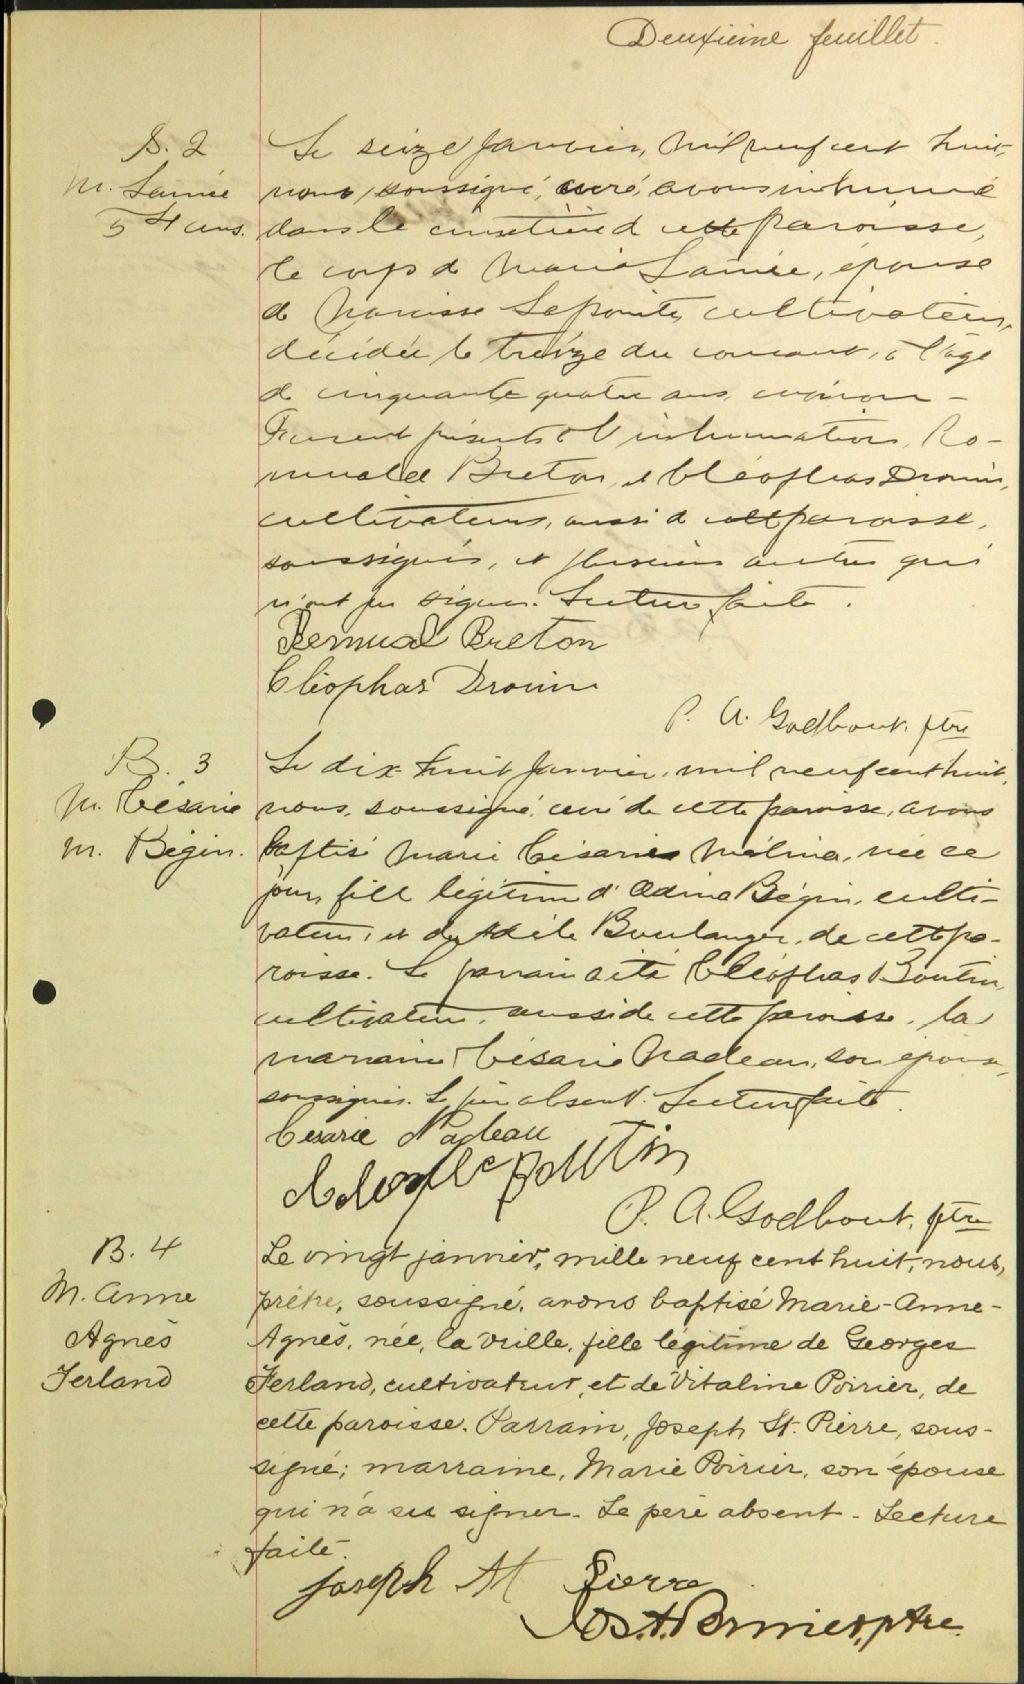 Deuxième feuillet.
S. 2
M. Lainée
54 ans.
Le seize janvier, mil neuf cent huit,
nous, soussigné, curé, avons inhumé
dans le cimetière d cette paroisse,
le corps d Marie Lainée, épouse
de Narcisse Lapointe, cultivateur,
décédée le treize du courant, à l'âge
de cinquante quatre ans environ -
Furent présents à l'inhumation, Ro-
muald Breton, et Cléophas Drouin,
cultivateurs, aussi d cette paroisse,
soussignés, et plusieurs autres qui
n'ont pu signer. Lecture faite.
Remuald Breton
Cléophas Drouin
P. A. Godbout, ptre
B. 3
M. Césarie
M. Bégin.
Le dix-huit janvier, mil neuf cent huit,
nous, soussigné, curé de cette paroisse, avons
baptisé Marie Césarie Mélina, née ce
jour, fille légitime d'Odina Bégin, culti-
vateur, et de Adèle Boulanger, de cette pa-
roisse. Le parrain a été Cléophas Boutin,
cultivateur, aussi de cette paroisse, la
marraine Césarie Nadeau, son épouse,
soussignés. Le père absent. Lecture faite.
Cesarie Nadeau
Boutin
P. A. Godbout, ptre
B. 4
M. Anne
Agnès
Ferland
Le vingt janvier, mille neuf cent huit, nous,
prêtre, soussigné, avons baptisé Marie-Anne-
Agnès, née, la veille, fille légitime de Georges
Ferland, cultivateur, et de Vitaline Poirier, de
cette paroisse. Parrain, Joseph St. Pierre, sous-
signé; marraine, Marie Poirier, son épouse
qui n'a su signer. Le père absent - Lecture
faite.
Joseph St Pierre
Jos. A. Bernier, ptre.